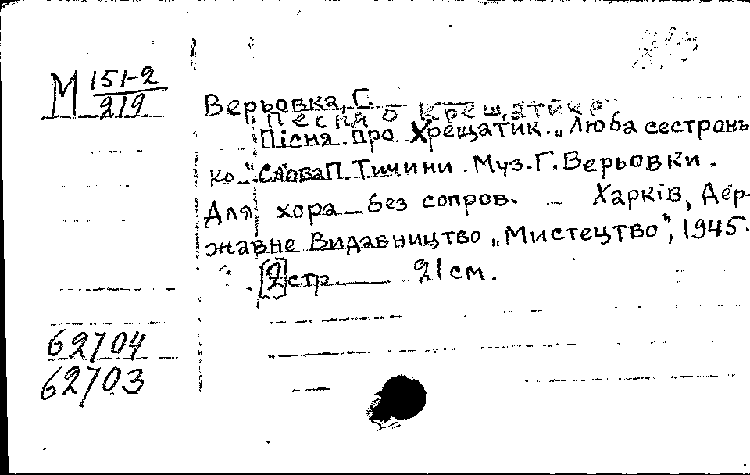 М 151-2
219
Верьовка, Г.
Песня о Крещатике
Пісня про Хрещатик. „Люба сестронь
ко..." Слова П. Тичини. Муз. Г. Верьовки.
Для хора без сопров. – Харків, Дер-
жавне Видавництво „Мистецтво", 1945.
[2] стр 21 см.
62704
62703